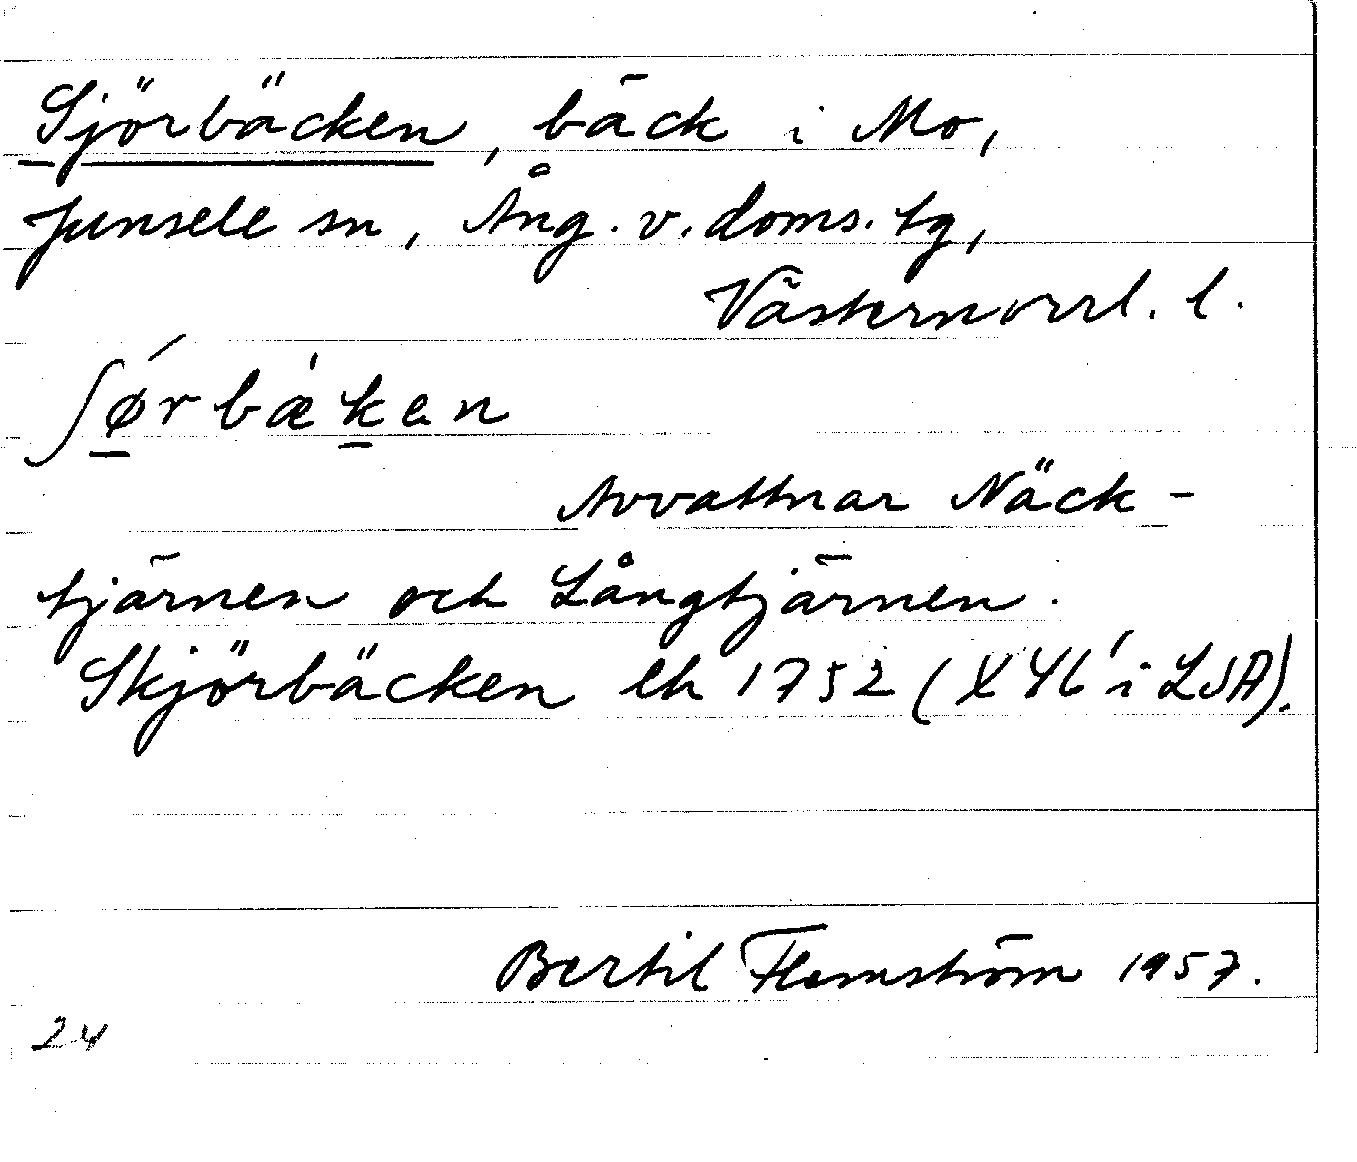 Sjörbäcken, bäck i Mo,
Junsele sn, Ång. v. doms. tg,
Västernorrl. l.
ʃǿrbæ̍ken
Avvattnar Näck-
tjärnen och Långtjärnen.
Skjörbäcken lh 1752 (X46' i LSA).
Bertil Flemström 1957.
24